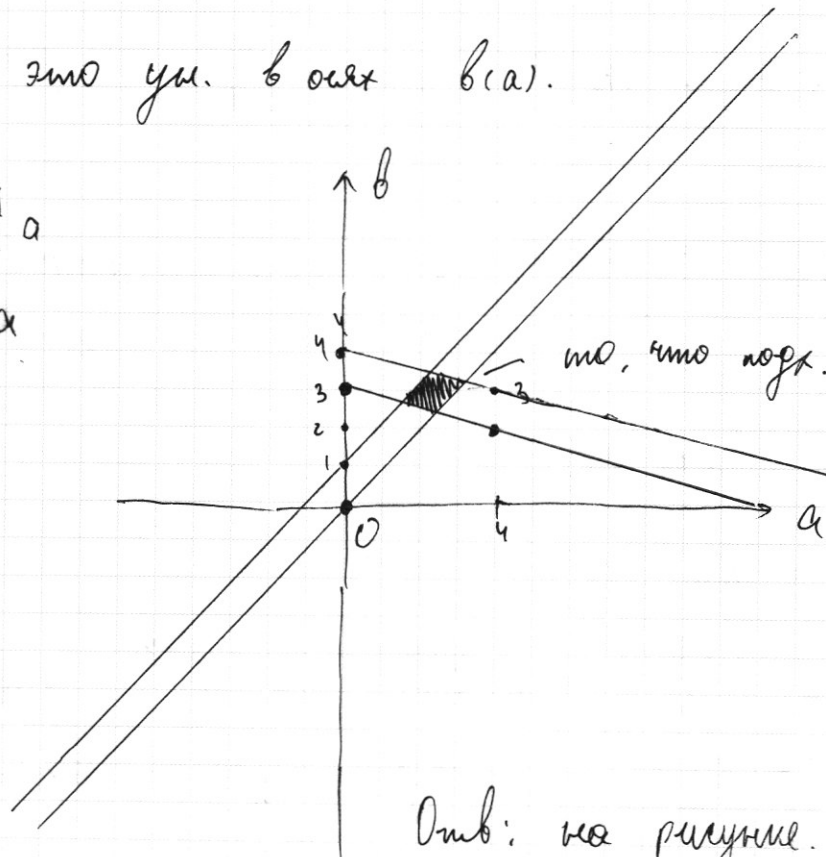 это ул. в осях в(а).
в
а
а
4
4
3
2
1
то, что подх.
3
0
4
а
Отв: на рисунке.